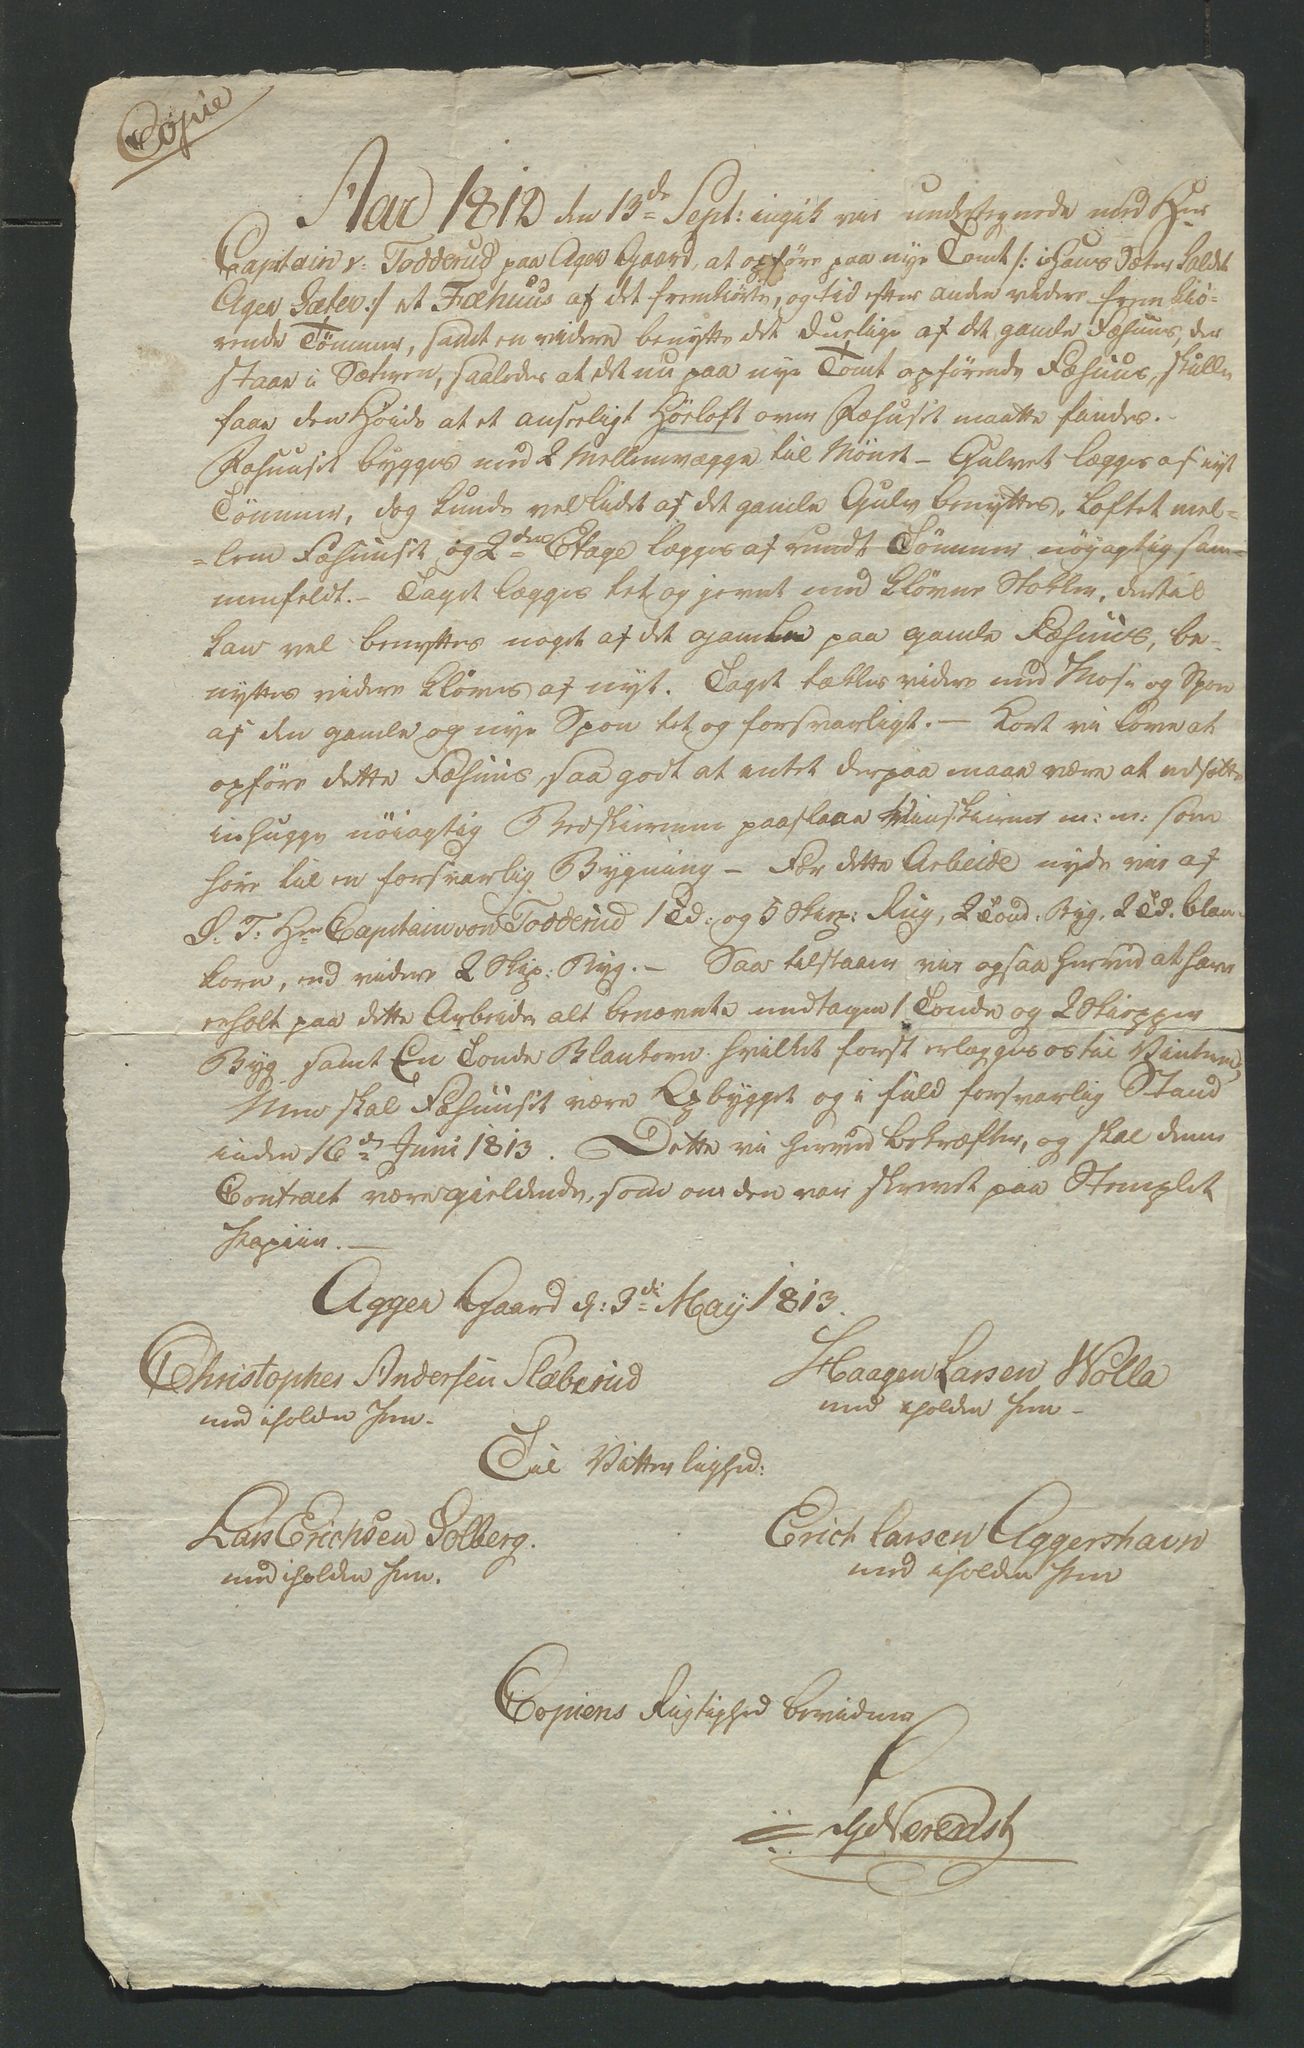 Copie
Aar 1812 den 13de Sept: ingik vie undertegnede med Her
Captain v: Todderud paa Ager Gaard, at opføre paa nye Tomt /: i Hans Sæter kaldt
Ager Sæter :/ et Fæhuus af det fremkiørte, og tid efter anden videre frem kiø-
rende Tømmer, samt en videre benytte det duelige af det gamle Fæhuus, der
staar i Sætren, saaledes at det nu paa nye Tomt opførende Fæhuus, skulle
faae den Høide at et anseeligt Höeloft over Fæhuset maatte findes.
Fæhuuset bygges med 2 Mellemvægge til Mönet - Gulvet lægges af nyt
Tömmer, dog kunde vel lidet af det gamle Gulv benyttes, Loftet mel-
-lem Fæhuuset og 2den Etage lægges af rundt Tömmer nöyagtig sam-
menfeldt. - Taget lægges tet og jevnt med klövne Stokker, dertil
kan vel benyttes noget af det gamle paa gamle Fæhuus, be-
nyttes videre klöves af nyt. Taget tækkes videre med Mose og Spon
af den gamle og nye Spon tet og forsvarligt. - Kort vi love at
opföre dette Fæhuus saa godt at intet derpaa maae være at udsætte
inhugge nöiagtig Bedskinnene paaslaae Vinskierne m: m: som
höre til en forsvarlig Bygning - For dette Arbeide nyde vie af
S: T: Hr Captain von Todderud 1 Td: og 5 Skiep: Rug, 2 Tønd. Byg, 2 Td. blan-
korn, end videre 2 Skip: Byg. - Saa tilstaaer vie ogsaa herved at have
erholt paa dette Arbeide alt benævnte undtagen 1 Tonde og 2 Skiepper
Byg samt En Tonde Blankorn hvilket først erlægges os til Vinteren,
Men skal Fæhuuset være Opbygget og i fuld forsvarlig Stand
inden 16de Juni 1813. Dette vi herved bekræfter, og skal denne
Contract være gieldende, som om den var skrevet paa Stemplet
Papiir. -
Agger Gaard d: 3de May 1813.
Christopher Andersen Slæberud
med iholden Pen -
Haagen Larsen Wolla
med iholden Pen -
Til Vitterlighed:
Lars Erichsen Solberg.
med iholden Pen.
Erich Larsen Aggershavn
med iholden Pen
Copiens Rigtighed bevidner